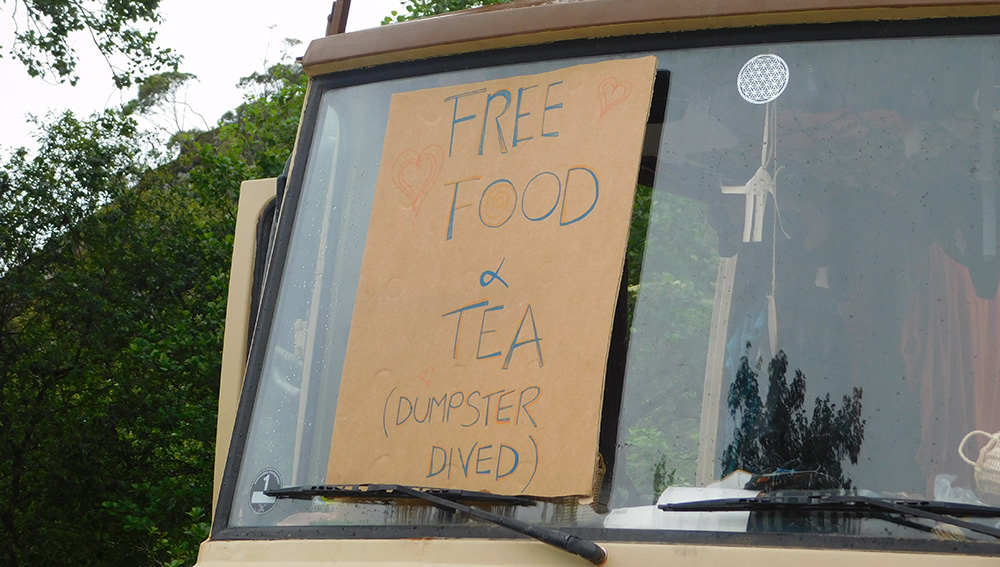 FREE
FOOD
&
TEA
(DUMPSTER
DIVED)